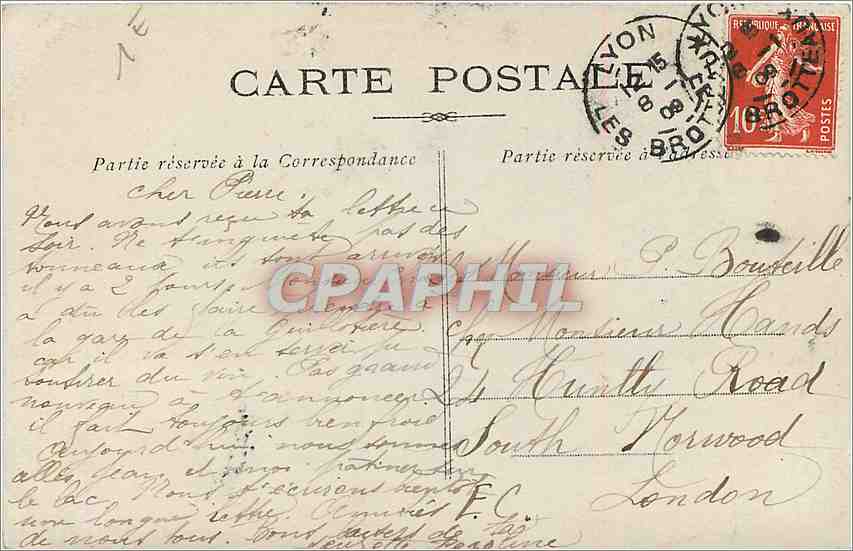 1 €
CARTE POSTALE
LYON
15
8 1
09
LES BROTTEAUX
REPUBLIQUE FRANÇAISE
10
POSTES
Partie réservée à la Correspondance
Partie réservée à l'adresse
Cher Pierre,
Nous avons reçu ta lettre ce
soir. Ne t'inquiète pas des
tonneaux ils sont arrivés
il y a 2 jours
a dû les faire à
la gare de la Guillotière
car il va s'en servir pr
soutirer du vin. Pas grand
nouveau à t'annoncer
il fait toujours bien froid
Aujourd'hui nous sommes
allés Jean et moi patiner sur
le lac. Nous t'écrirons bientôt
une longue lettre. Amitiés
de nous tous. Bons baisers de ta
Monsieur P. Bouteille
chez Monsieur Hands
24 Huntly Road
South Norwood
London
E. C.
CPAPHIL